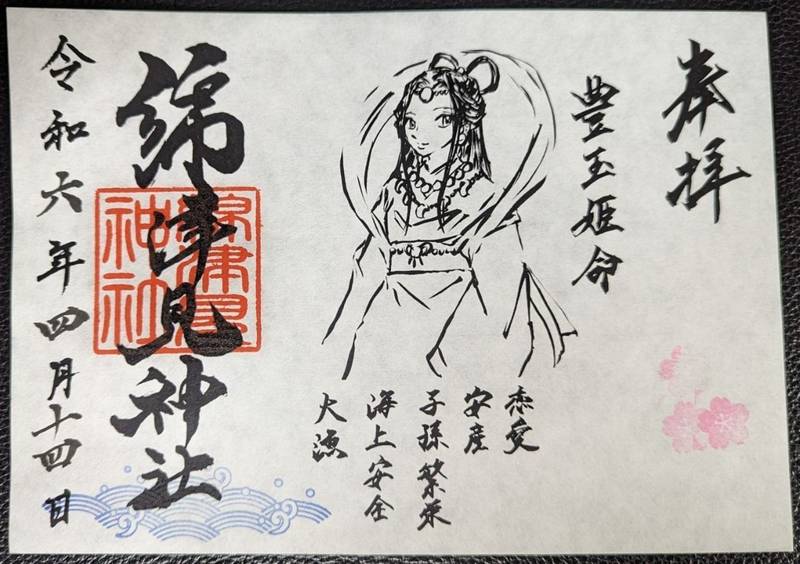 奉拝
豊玉姫命
恋愛
安産
子孫繁栄
海上安全
大漁
綿津見神社
綿津見
神社
令和六年四月十四日